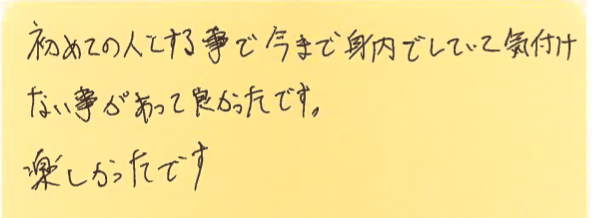 初めての人とする事で今まで身内でしていて気付け
ない事があって良かったです。
楽しかったです